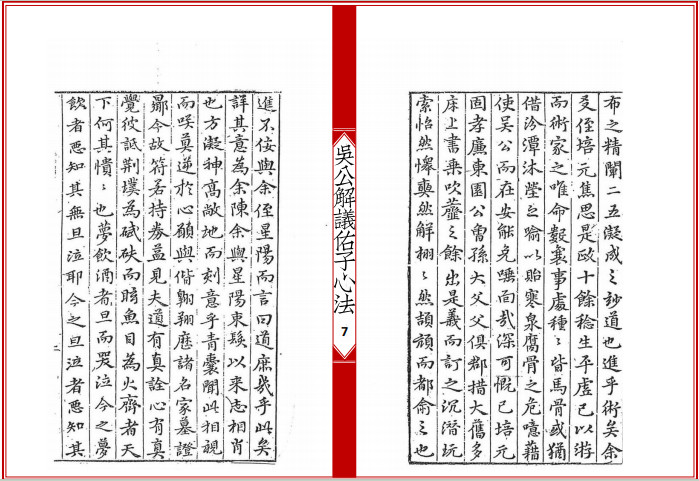 布之精闡二五凝成之秘道也進乎術矣余
侄培元焦思是政十餘稔生平虛已以游
而術家之唯命襄事處種〻皆馬骨或猶
借汾潭沐瑩之喻以貽寒泉腐骨之危噫藉
使吳公而在安能免唾面哉深可慨已培元
固孝廉東園公曾孫大父父俱郡措大舊多
床上書乗吹虀之餘出是義而訂之沉潛玩
索怡然懌奭然解栩〻然頷而都俞之也
吳公解議佑子心法
7
進不佞與余侄星陽而言曰道庶幾乎此矣
詳其意為余陳余與星陽束髮以來志相肖
也方凝神高敞地而刻意乎青囊聞此相視
而唉莫逆於心願與偕翱翔歷諸名家墓證
曩今故符若持券益見夫道有真詮心有真
覺彼詆荊璞為碔砆而眩魚目為火齊者天
下何其憒〻也夢飲酒者旦而哭泣今之夢
飲者惡知其無旦泣耶今之旦泣者惡知其